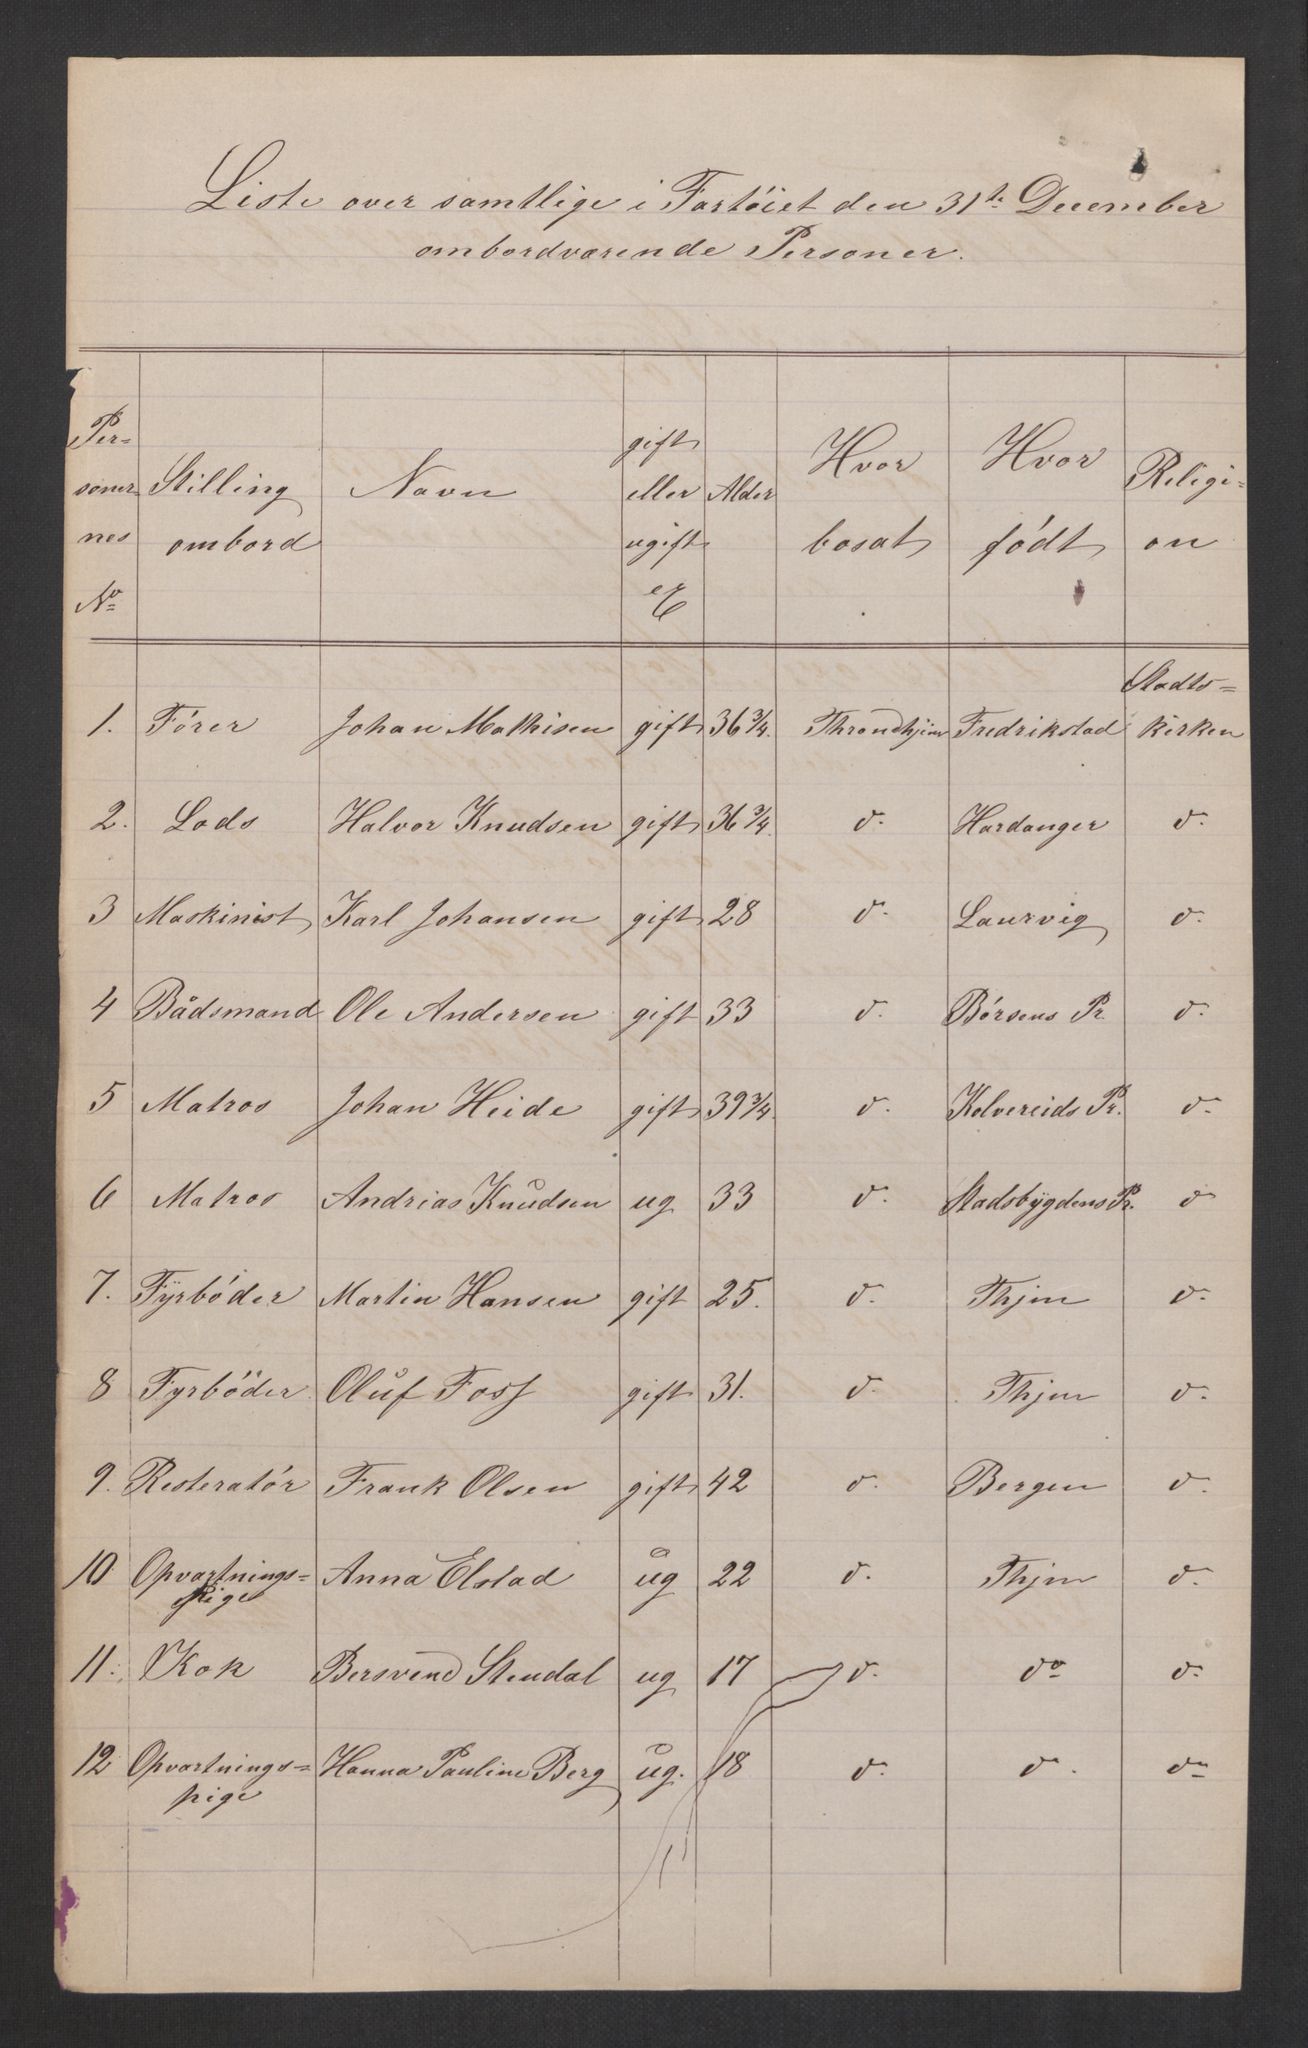 Liste over samtlige i Fartöiet den 31te December
ombordværende Personer.
Per=
soner=
nes
No
Stilling
ombord
Navn
gift
eller
ugift
Alder
Hvor
bosat
Hvor
född
Religi=
on
1. Förer Johan Mathisen gift 36 3/4. Throndhjem Fredrikstad Stadts=
kirken
2. Lods Halvor Knudsen gift 36 3/4. do. Hardanger do.
3 Maskinist Karl Johansen gift 28 do. Laurvig do.
4 Bådsmand Ole Andersen gift 33 do. Börsens Pr. do.
5 Matros Johan Heide gift 39 3/4. do. Kolvereids Pr. do.
6 Matros Andrias Knudsen ug 33 do. Stadsbygdens Pr. do
7. Fyrböder Martin Hansen gift 25. do. Thjm do.
8 Fyrböder Oluf Foss gift 31. do. Thjm do.
9. Resteratör Frank Olsen gift 42 do. Bergen do.
10 Opvartnings=
Pige Anna Elstad ug 22 do. Thjm do.
11. Kok Bersvend Stendal ug 17 do. do do.
12 Opvartnings=
pige Hanna Pauline Berg ug. 18 do. do. do